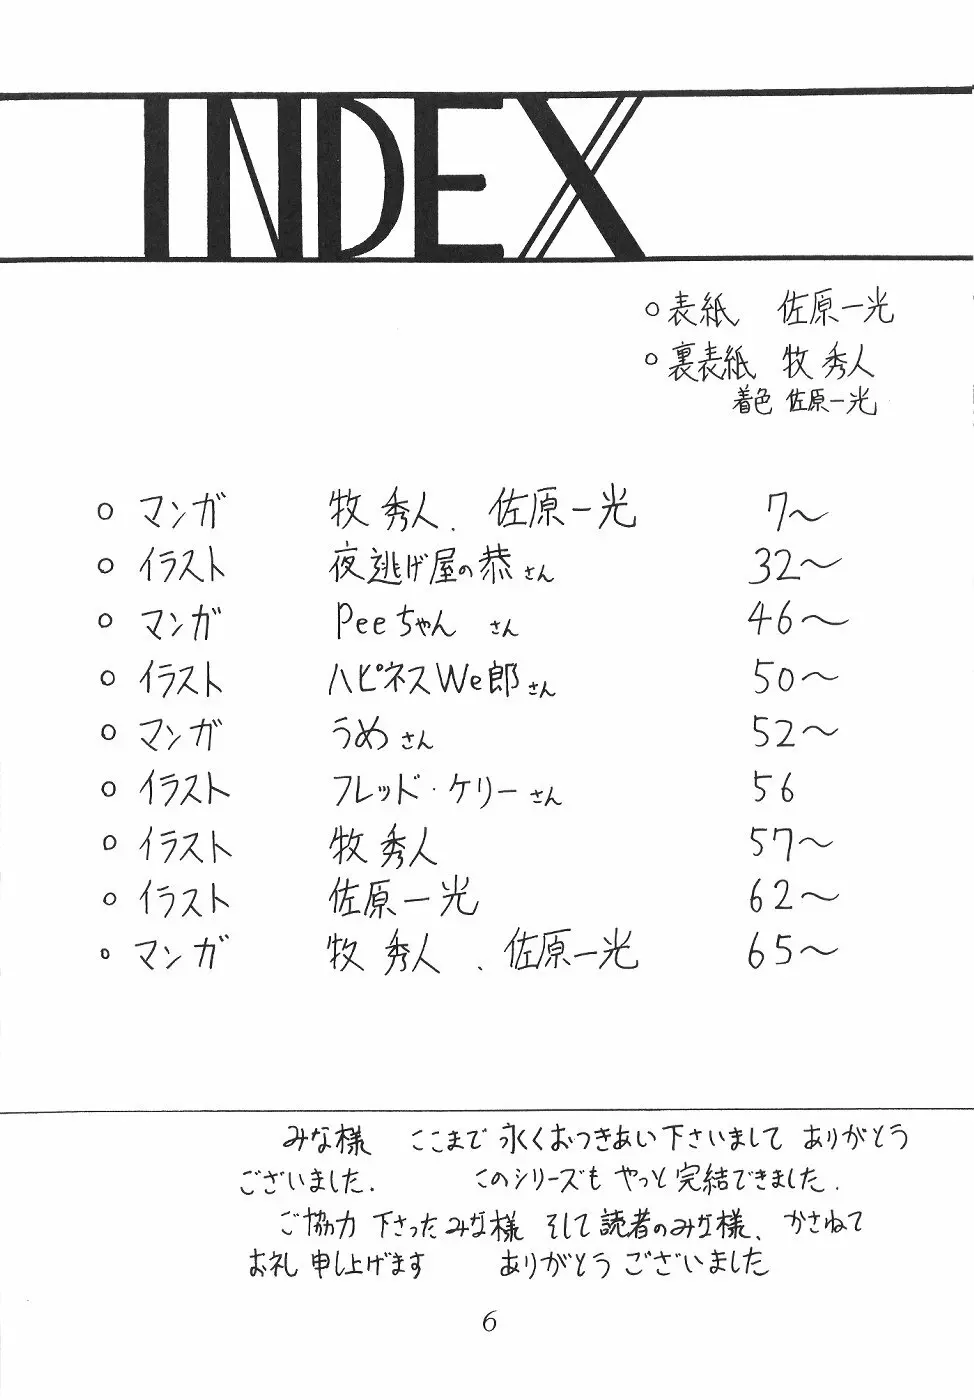 INDEX
○表紙 佐原一光
○裏表紙 牧 秀人
着色 佐原一光
○ マンガ 牧 秀人、佐原一光 7〜
○ イラスト 夜逃げ屋の恭さん 32〜
○ マンガ Peeちゃん さん 46〜
○ イラスト ハピネスWe郎さん 50〜
○ マンガ うめさん 52〜
○ イラスト フレッド・ケリーさん 56
○ イラスト 牧 秀人 57〜
○ イラスト 佐原一光 62〜
○ マンガ 牧 秀人、佐原一光 65〜
みな様 ここまで 永くおつきあい下さいまして ありがとう
ございました. このシリーズも やっと 完結できました.
ご協力 下さったみな様 そして読者のみな様、かさねて
お礼 申し上げます ありがとう ございました
6